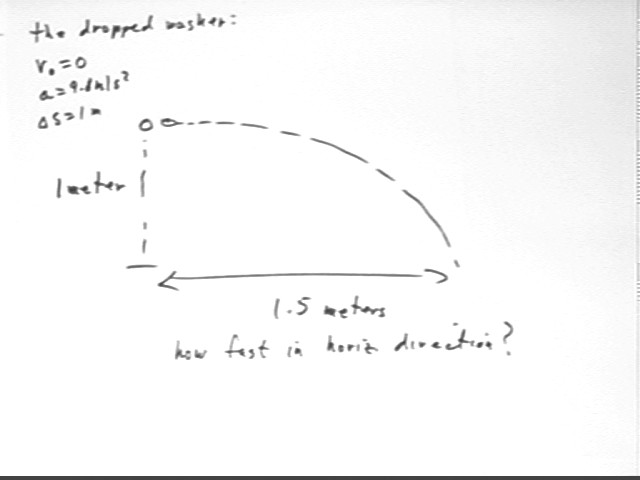 the dropped washer:
v₀=0
a=9.8m/s²
ΔS=1m
1 meter
1.5 meters
how fast in horiz direction?